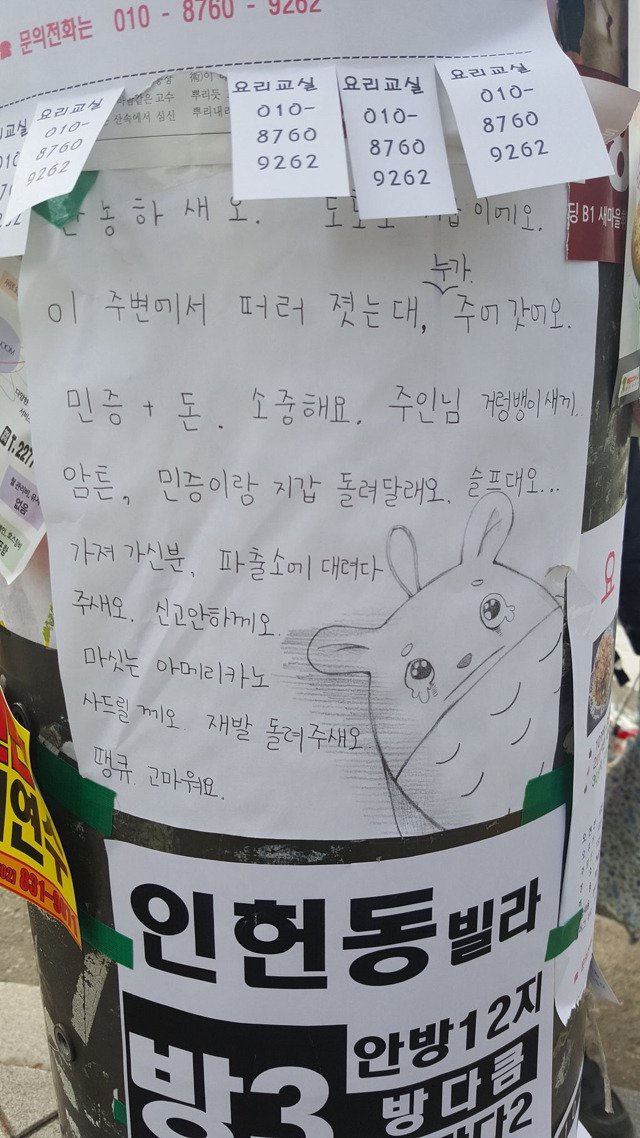 ☎ 문의전화는 010 - 8760 - 9262
요리교실
010-
8760
9262
요리교실
010-
8760
9262
요리교실
010-
8760
9262
요리교실
010-
8760
9262
같은 고수
산속에서 심신
뿌리듯
뿌리내
농하새오. 이에요.
누가.
이 주변에서 떠러 젓는대, 주어 갓어오.
민증 + 돈. 소중해요. 주인님 거렁뱅이새끼.
암튼, 민증이랑 지갑 돌려달래오. 슬프대오...
가져 가신분, 파출소에 대려다
주새오. 신고안하께오.
마싯는 아메리카노
사드릴께오. 재발 돌려주새오
땡큐. 고마워요.
딩 B1 새마을
T.227
없음
831-
요
인헌동빌라
방3
안방12지
방다큼